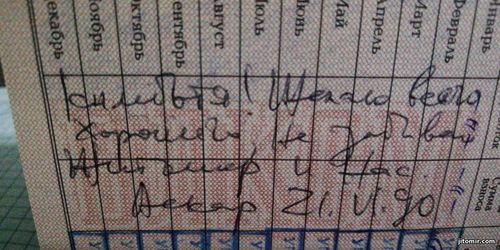 Январь
Февраль
Март
Апрель
Май
Июнь
Июль
Август
Сентябрь
Октябрь
Ноябрь
Декабрь
Сумма
взноса
Желаю всего
хорошего, не забывай
Житомир и нас.
Аскар 21.VI.90
jitomir.com